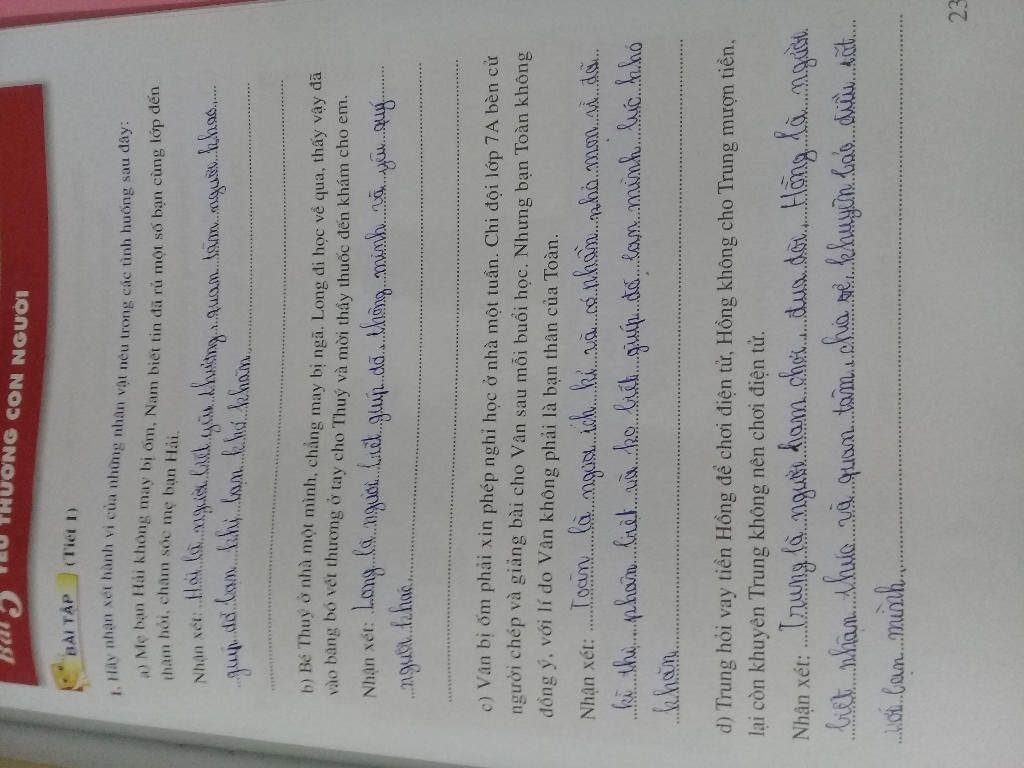 Bài 5 YÊU THƯƠNG CON NGƯỜI
BÀI TẬP (Tiết 1)
1. Hãy nhận xét hành vi của những nhân vật nêu trong các tình huống sau đây:
a) Mẹ bạn Hải không may bị ốm, Nam biết tin đã rủ một số bạn cùng lớp đến
thăm hỏi, chăm sóc mẹ bạn Hải.
Nhận xét: Hải là người biết yêu thương, quan tâm người khác,
giúp đỡ bạn khi bạn khó khăn
b) Bé Thuý ở nhà một mình, chẳng may bị ngã. Long đi học về qua, thấy vậy đã
vào băng bó vết thương ở tay cho Thuý và mời thầy thuốc đến khám cho em.
Nhận xét: Long là người biết giúp đỡ, thông minh và yêu quý
người khác
c) Vân bị ốm phải xin phép nghỉ học ở nhà một tuần. Chi đội lớp 7A bèn cử
người chép và giảng bài cho Vân sau mỗi buổi học. Nhưng bạn Toàn không
đồng ý, với lí do Vân không phải là bạn thân của Toàn.
Nhận xét: Toàn là người ích kỉ và có phần nhỏ mọn vì đã
kì thị, phân biệt và ko biết giúp đỡ bạn mình lúc khó
khăn
d) Trung hỏi vay tiền Hồng để chơi điện tử, Hồng không cho Trung mượn tiền,
lại còn khuyên Trung không nên chơi điện tử.
Nhận xét: Trung là người ham chơi, đua đòi, Hồng là người
biết nhận thức và quan tâm, chia sẻ, khuyên bảo điều tốt
với bạn mình
23